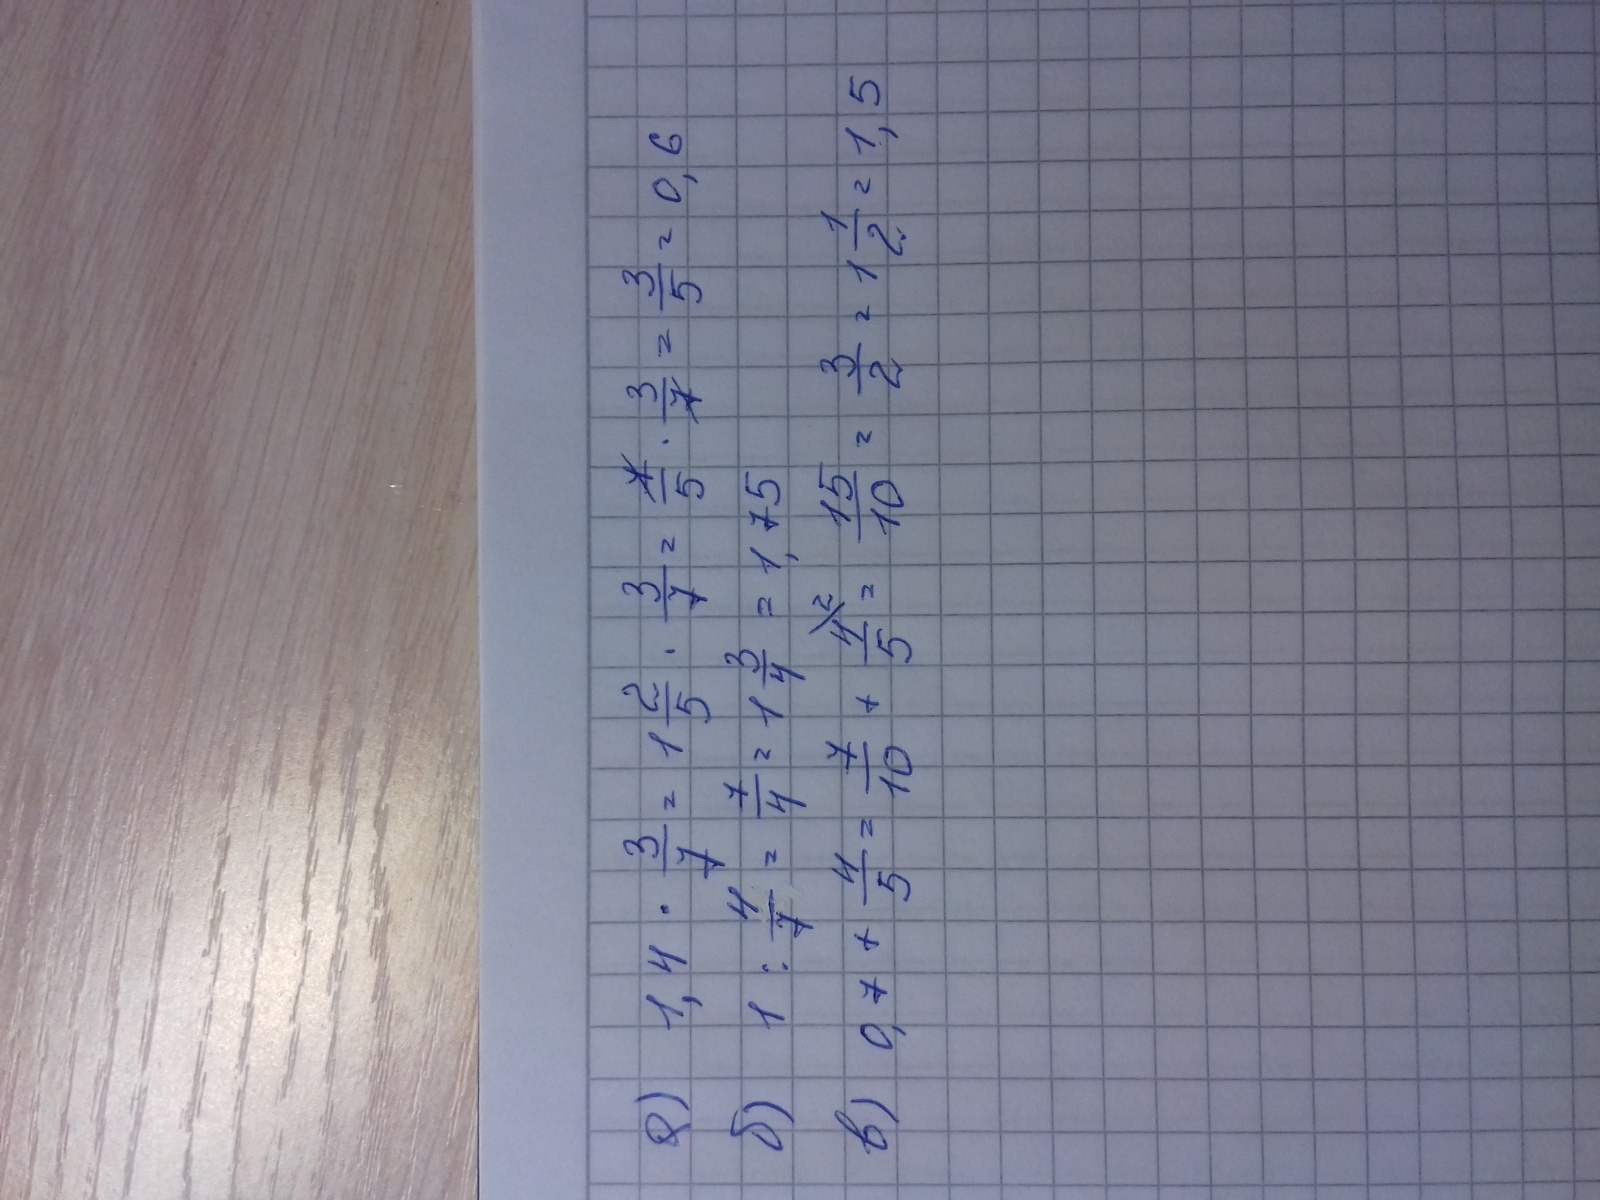 а) 1,4 · 3/7 = 1 2/5 · 3/7 = 7/5 · 3/7 = 3/5 = 0,6
б) 1 : 4/7 = 7/4 = 1 3/4 = 1,75
в) 0,7 + 4/5 = 7/10 + 4/5 \2 = 15/10 = 3/2 = 1 1/2 = 1,5